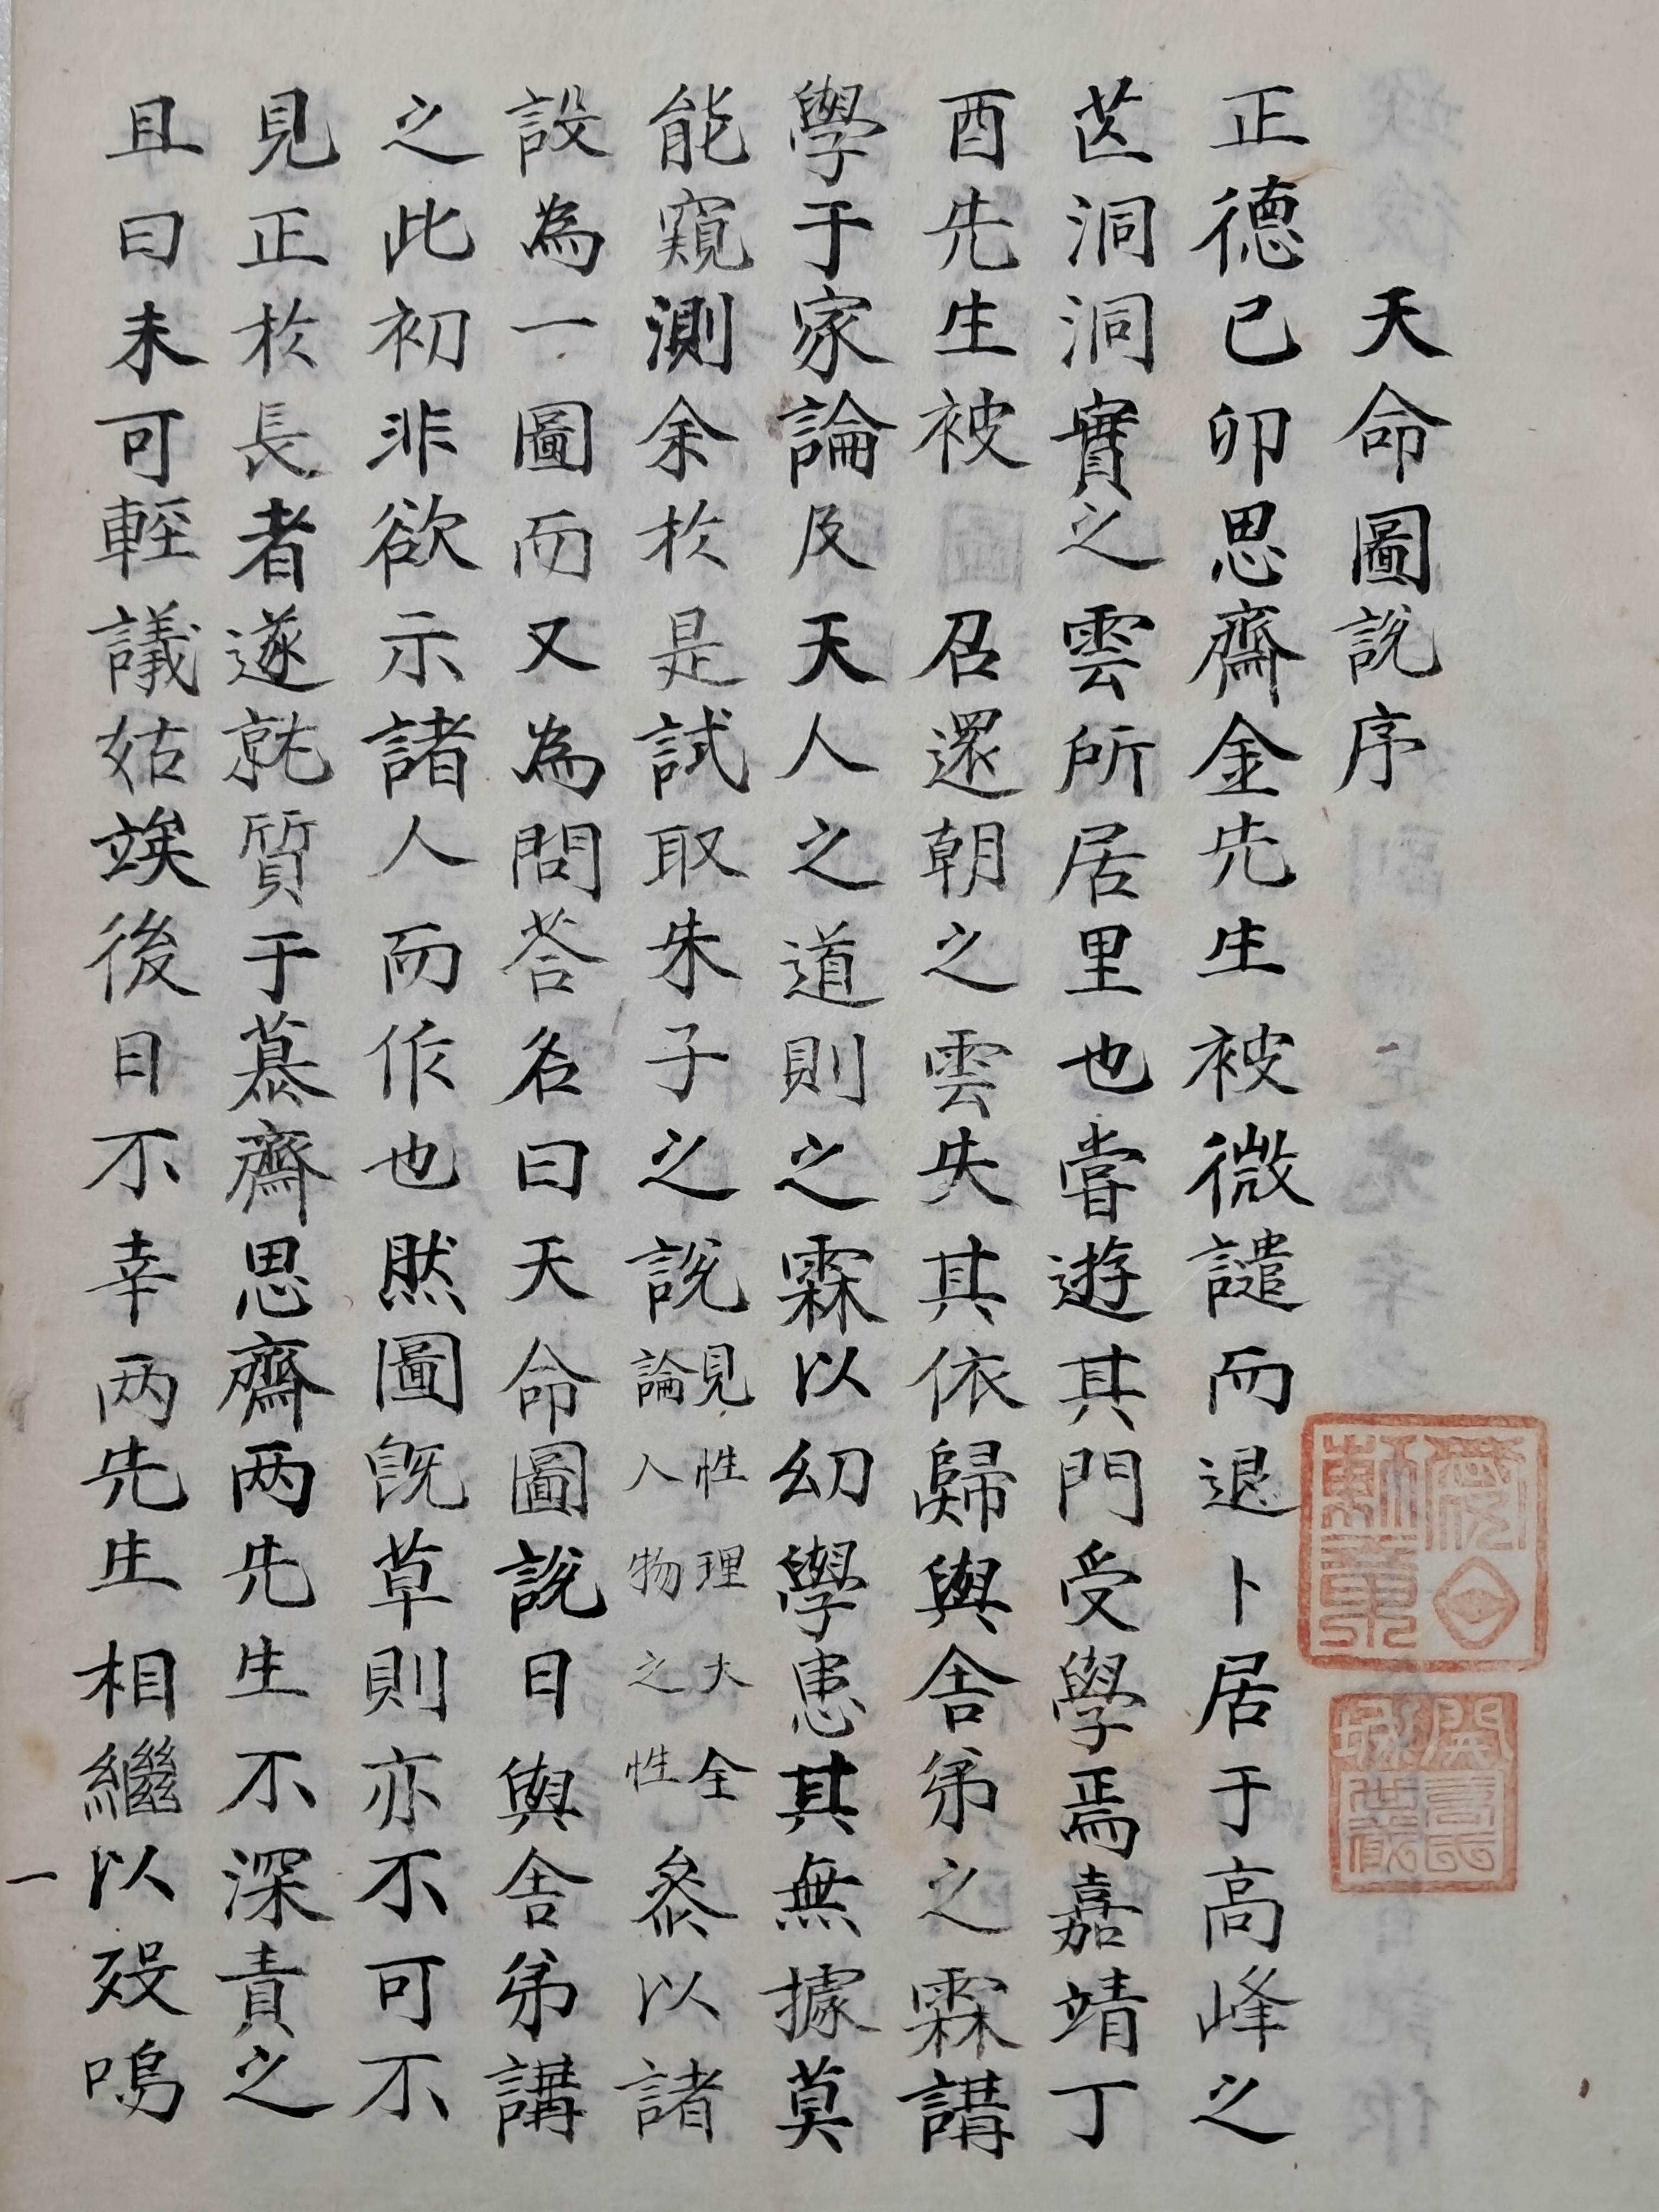 天命圖說序
正德己卯思齋金先生被微譴而退卜居于高峰之
芚洞洞實之雲所居里也嘗遊其門受學焉嘉靖丁
酉先生被 召還朝之雲失其依歸與舍弟之霖講
學于家論及天人之道則之霖以幼學患其無據莫
能窺測余於是試取朱子之說見性理大全論人物之性叅以諸
設為一圖而又為問荅名曰天命圖說日與舍弟講
之此初非欲示諸人而作也然圖旣草則亦不可不
見正於長者遂就質于慕齋思齋兩先生不深責之
且曰未可輕議姑竢後日不幸兩先生相繼以歿嗚
一